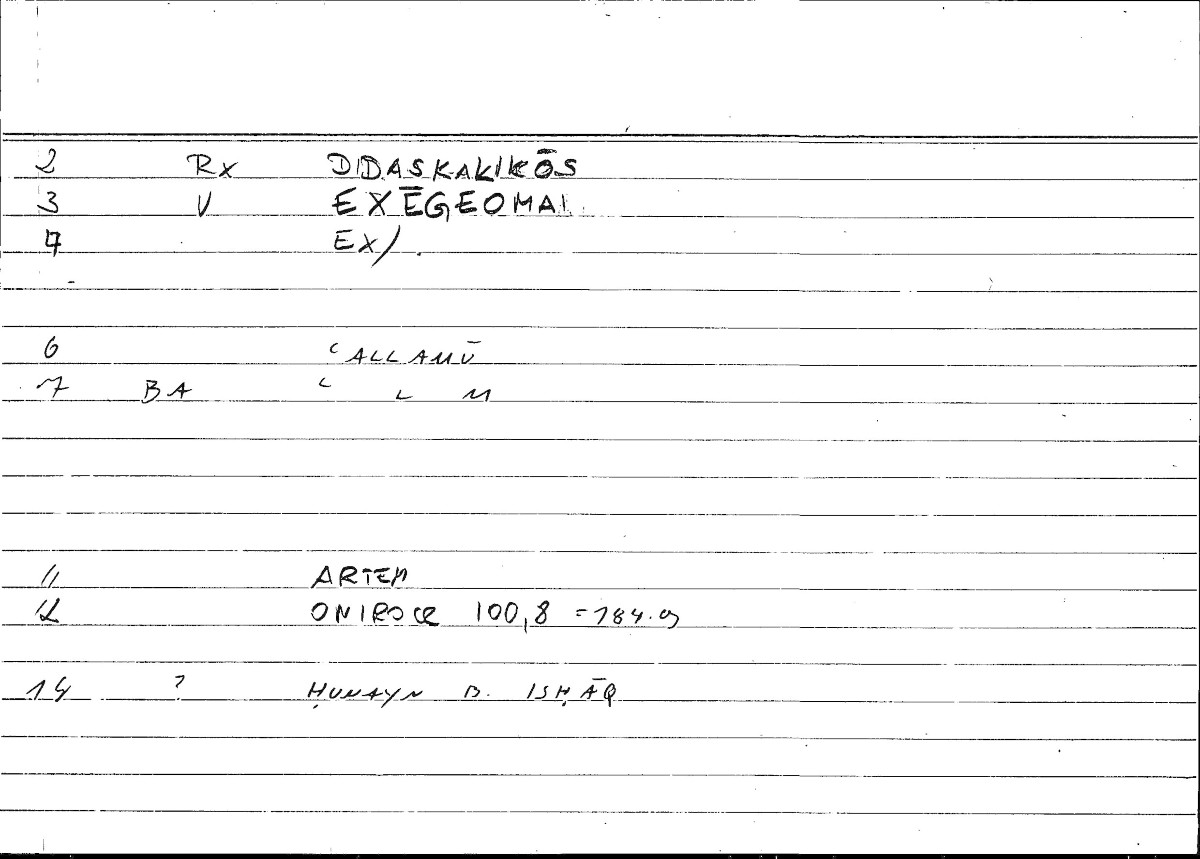 2 Rx DIDASKAKIKŌS
3 V EXĒGEOMAI
4 EX/.
6 ʿALLAMŪ
7 BA ʿ L M
11 ARTEM
12 ONIROCR 100,8 = 184.9
14 ? ḤUNAYN B. ISḤĀQ